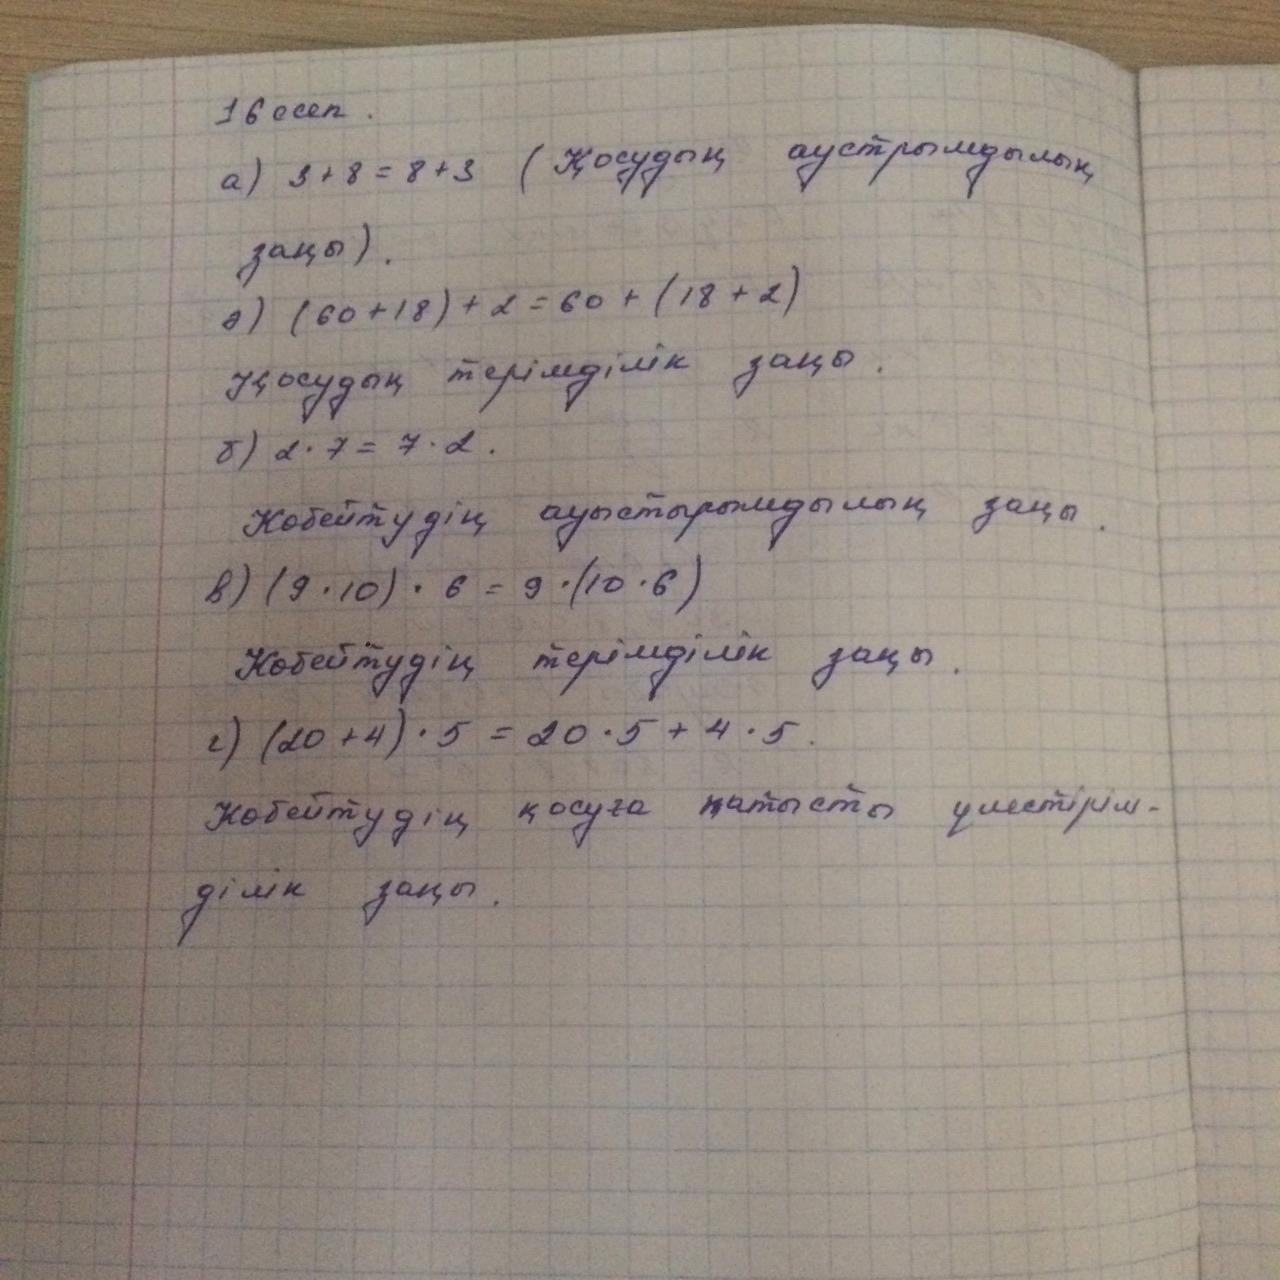 16 есеп.
а) 3+8=8+3 (Қосудың аустрымдылық
заңы).
ә) (60+18)+2=60+(18+2)
Қосудың терімділік заңы.
б) 2·7=7·2.
Көбейтудің ауыстырымдылық заңы.
в) (9·10)·6=9·(10·6)
Көбейтудің терімділік заңы.
г) (20+4)·5=20·5+4·5.
Көбейтудің қосуға қатысты үлестірім-
ділік заңы.